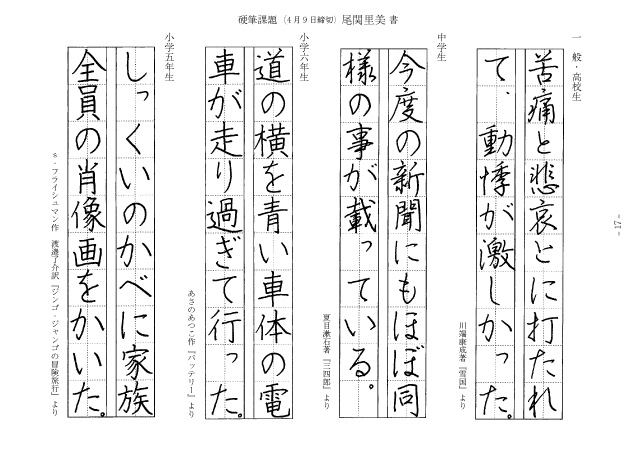 硬筆課題（4月9日締切）尾関里美 書
一般・高校生
苦痛と悲哀とに打たれ
て、動悸が激しかった。
川端康成著『雪国』より
中学生
今度の新聞にもほぼ同
様の事が載っている。
夏目漱石著『三四郎』より
小学六年生
道の横を青い車体の電
車が走り過ぎて行った。
あさのあつこ作『バッテリー』より
小学五年生
しっくいのかべに家族
全員の肖像画をかいた。
s・フライシュマン作　渡邉了介訳『ジンゴ・ジャンゴの冒険旅行』より
- 17 -